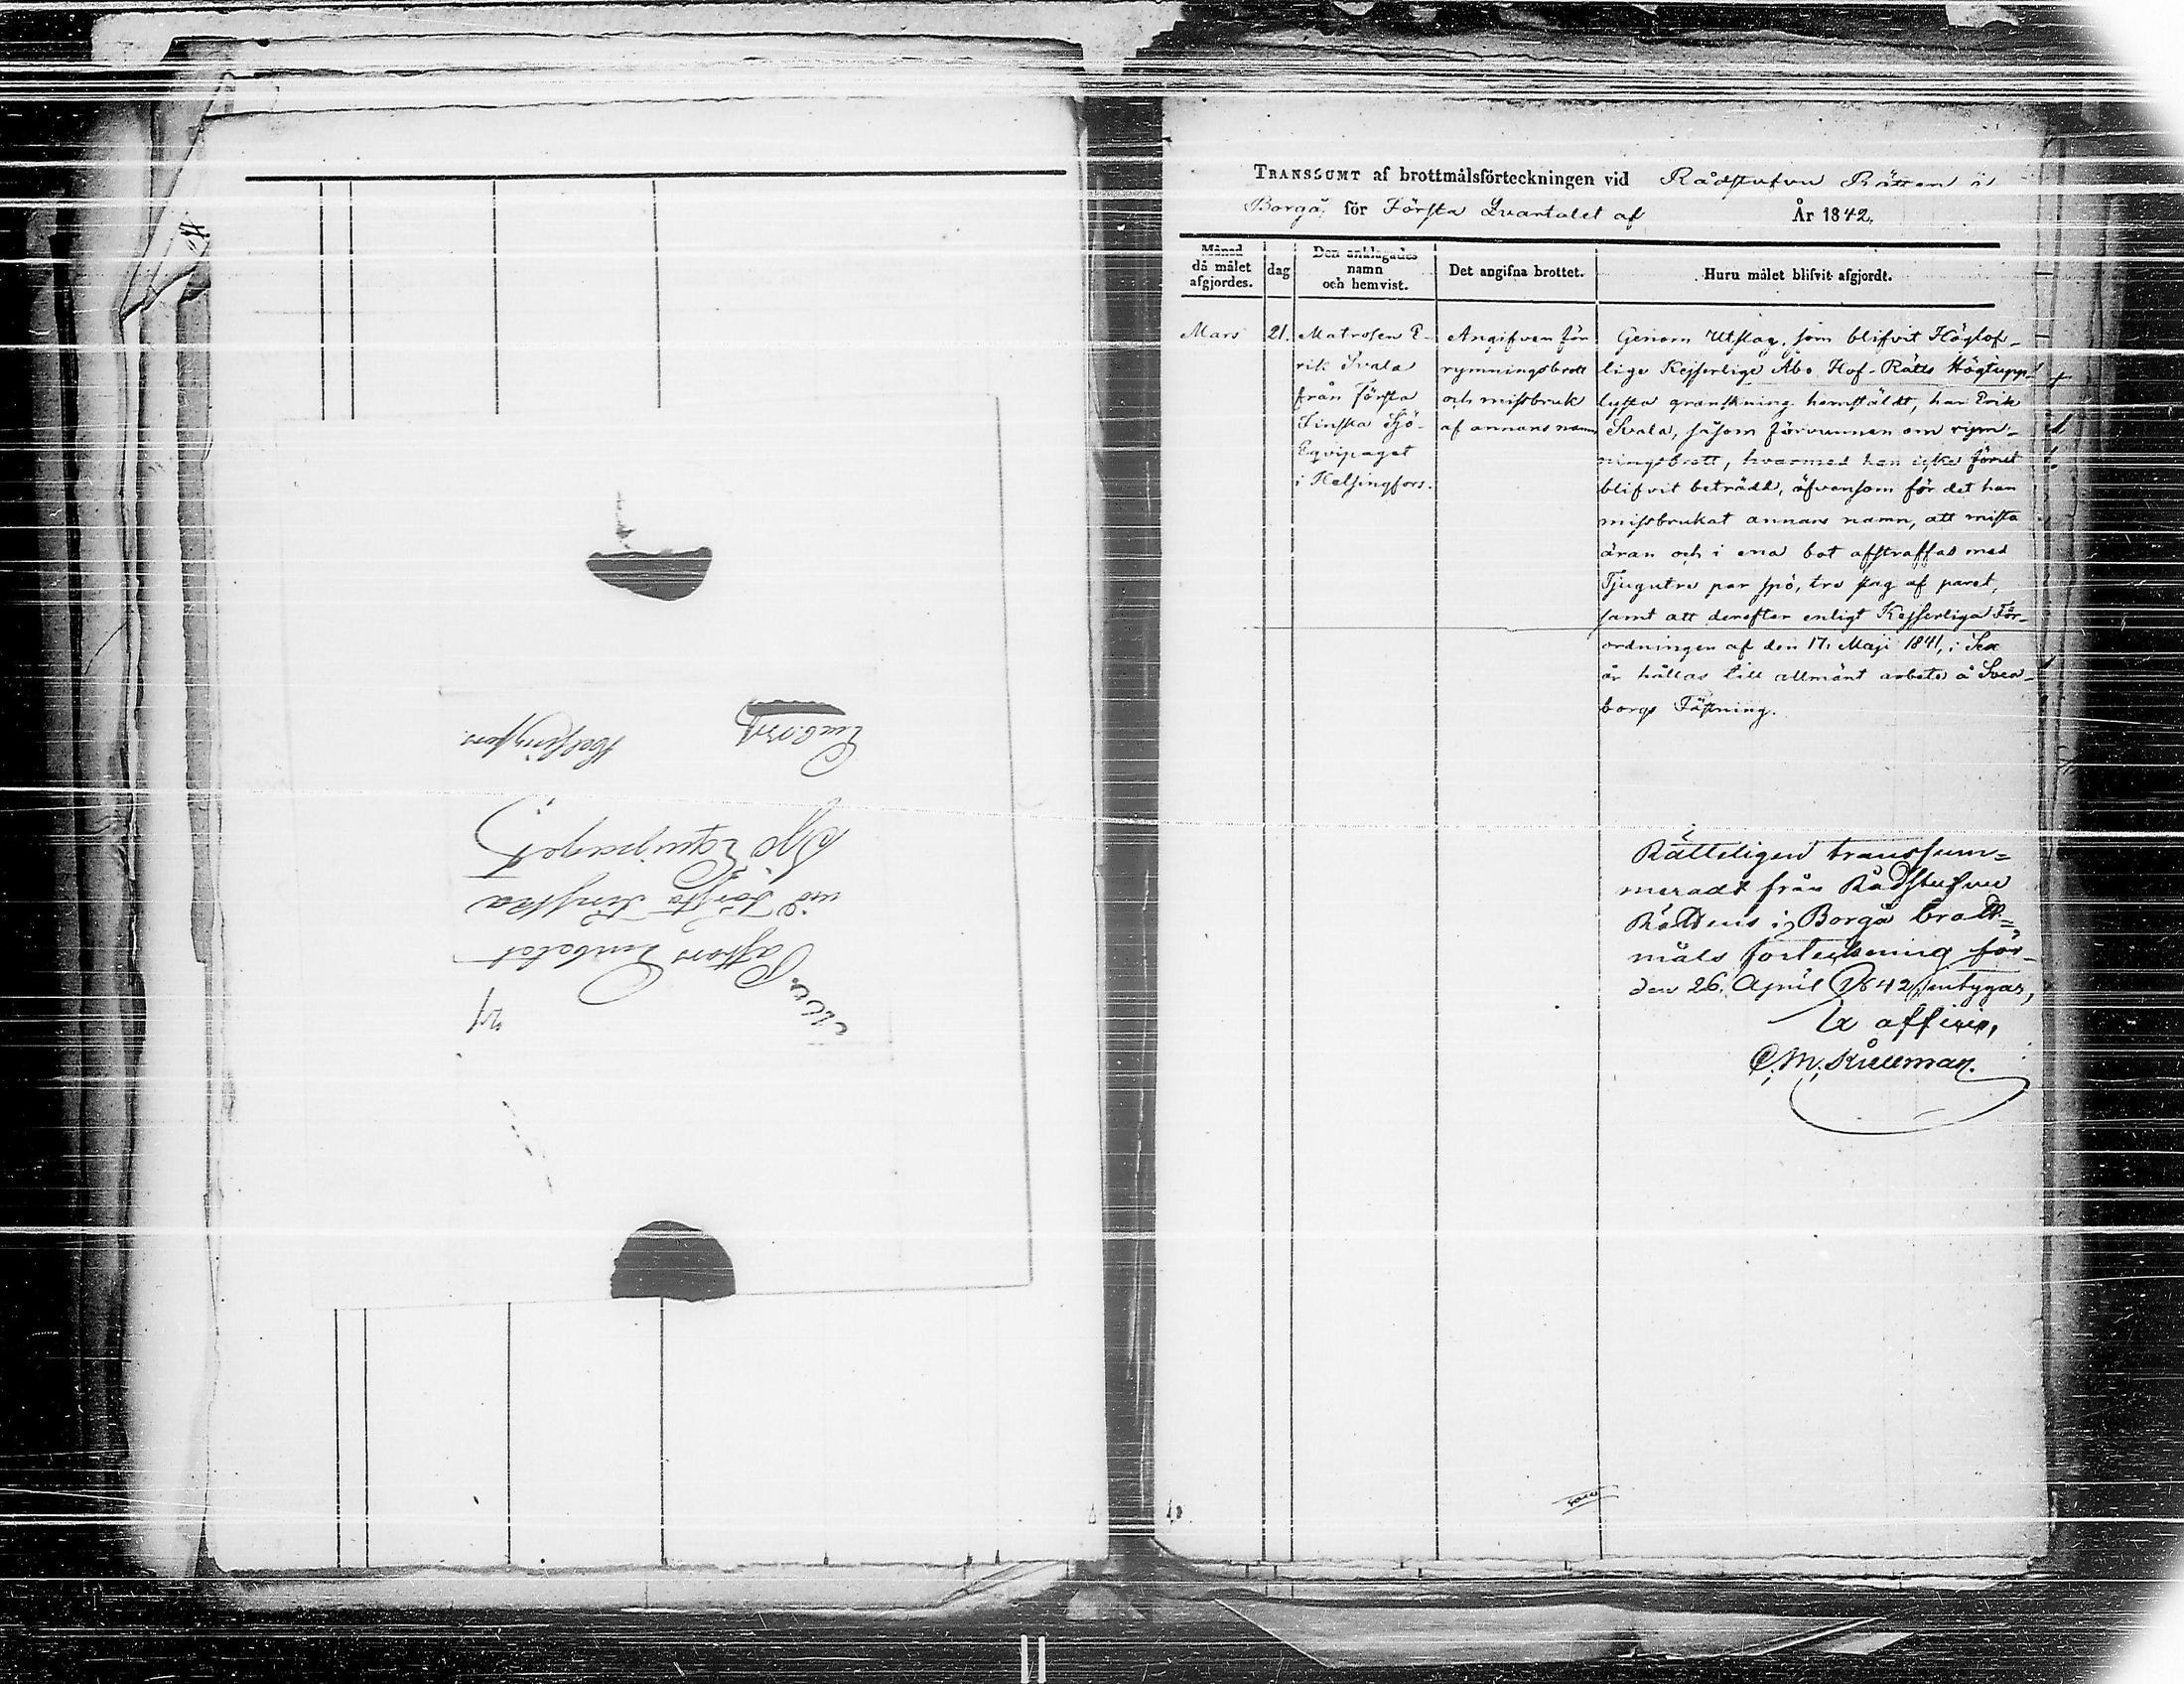 Pastors Embetet
vid Första Finska
Sjö Equipaget
Emb.
Helsingfors.
TRANSSUMT af brottmålsförteckningen vid Rådstufvu Rätten i
Borgå, för Första Qvartalet af År 1842.
Månad då målet afgjordes.
dag
Den anklagades namn och hemvist.
Det angifna brottet.
Huru målet blifvit afgjordt.
Mars
21.
Matrosen E-
rik Svala
från Första
Finska Sjö-
Eqvipaget
i Helsingfors.
Angifven för
rymningsbrott
och missbruk
af annans namn
Genom Utslag, som blifvit Höglof-
lige Kejserlige Åbo Hof-Rätts Högtupp-
lysta granskning hemstäldt, har Erik
Svala, såsom förvunnen om rym-
ningsbrott, hvarmed han icke förut
blifvit beträdd, äfvensom för det han
missbrukat annans namn, att mista
äran och i ena bot afstraffas med
Tjugutre par spö, tre slag af paret,
samt att derefter enligt Kejserliga För-
ordningen af den 17. Maji 1841, i Sex
år hållas till allmänt arbete å Svea-
borgs Fästning.
Rätteligen transsum-
meradt från Rådstufvu
Rättens i Borgå brott-
måls förteckning för
den 26. April 1842, intygar,
Ex officio,
C. M.